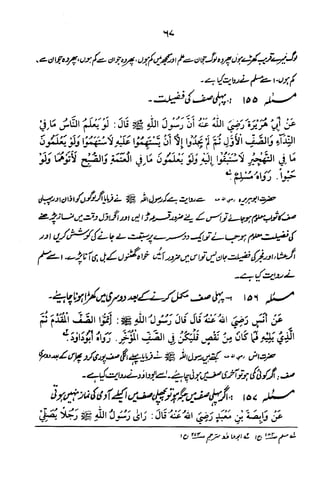 ۶۷
لوگ میرے قریب کھڑے ہوں پھر وہ لوگ جو ان سے علم اور سمجھ میں کم ہوں، پھر وہ جو ان سے کم ہوں، پھر وہ جو ان سے
کم ہوں۔ اسے مسلم نے روایت کیا ہے۔
مسئلہ ۱۵۵ :۔ پہلی صف کی فضیلت۔
عَنْ أَبِي هُرَيْرَةَ رَضِيَ اللهُ عَنْهُ أَنَّ رَسُولَ اللهِ ﷺ قَالَ: لَوْ يَعْلَمُ النَّاسُ مَا فِي
النِّدَاءِ وَالصَّفِّ الْأَوَّلِ ثُمَّ لَمْ يَجِدُوا إِلَّا أَنْ يَسْتَهِمُوا عَلَيْهِ لَاسْتَهَمُوا وَلَوْ يَعْلَمُونَ
مَا فِي التَّهْجِيرِ لَاسْتَبَقُوا إِلَيْهِ وَلَوْ يَعْلَمُونَ مَا فِي الْعَتَمَةِ وَالصُّبْحِ لَأَتَوْهُمَا وَلَوْ
حَبْوًا. رَوَاهُ مُسْلِمٌ
حضرت ابوہریرہ سے روایت ہے کہ رسول اللہ ﷺ نے فرمایا اگر لوگوں کو اذان اور پہلی
صف کا ثواب معلوم ہو جائے تو اس کے لئے ضرور قرعہ ڈالیں اور اگر اول وقت میں نماز پڑھنے
کی فضیلت معلوم ہو جائے تو ایک دوسرے پر سبقت لے جانے کی کوشش کریں اور
اگر عشاء اور فجر کی فضیلت جان لیں تو اس میں ضرور آئیں خواہ گھٹنوں کے بل ہی آنا پڑے۔ اسے مسلم
نے روایت کیا ہے۔
مسئلہ ۱۵۶ :۔ پہلی صف مکمل کرنے کے بعد دوسری میں کھڑا ہونا چاہیئے۔
عَنْ أَنَسٍ رَضِيَ اللهُ عَنْهُ قَالَ قَالَ رَسُولُ اللهِ ﷺ: أَتِمُّوا الصَّفَّ الْمُقَدَّمَ ثُمَّ
الَّذِي يَلِيْهِ فَمَا كَانَ مِنْ نَقْصٍ فَلْيَكُنْ فِي الصَّفِّ الْمُؤَخَّرِ. رَوَاهُ أَبُودَاوُدَ
حضرت انس کہتے ہیں رسول اللہ ﷺ نے فرمایا پہلے اگلی صف پوری کرو پھر اس کے بعد دوسری
صف؛ اگر کوئی کمی ہو تو آخری صف میں ہونی چاہیئے۔ اسے ابو داؤد نے روایت کیا ہے۔
مسئلہ ۱۵۷ :۔ اگر پہلی صف میں جگہ ہو تو پچھلی صف میں اکیلے آدمی کی نماز نہیں ہوتی
عَنْ وَابِصَةَ بْنِ مَعْبَدٍ رَضِيَ اللهُ عَنْهُ قَالَ: رَأَى رَسُولُ اللهِ ﷺ رَجُلًا يُصَلِّي